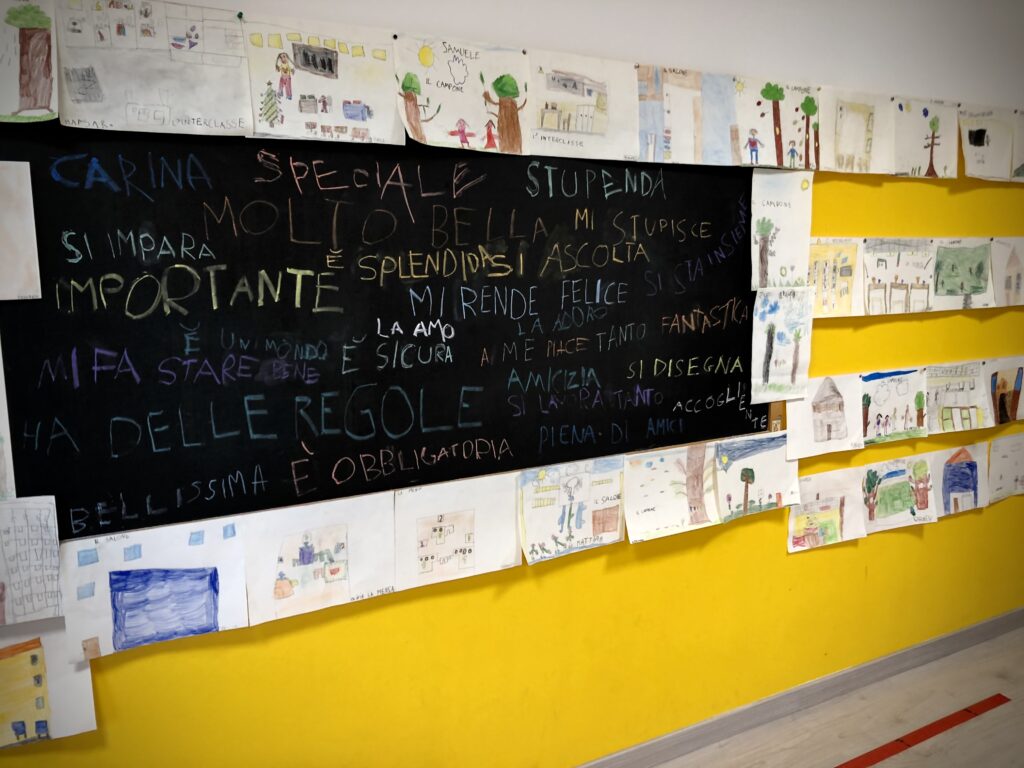 SAMUELE
IL CAMPONE
L'INTERCLASSE
L'INTERCLASSE
IL SALONE
CARINA
SPECIALE
STUPENDA
MOLTO BELLA
MI STUPISCE
SI IMPARA
È SPLENDIDA
SI ASCOLTA
SI STA INSIEME
IMPORTANTE
MI RENDE FELICE
LA AMO
LA ADORO
FANTASTICA
È UN MONDO
È SICURA
A ME PIACE TANTO
MI FA STARE BENE
AMICIZIA
SI DISEGNA
HA DELLE REGOLE
SI LAVORA TANTO
ACCOGLIENTE
È OBBLIGATORIA
PIENA DI AMICI
BELLISSIMA
IL CAMPONE
IL SALONE
LA MENSA
IL SALONE
MATTIA